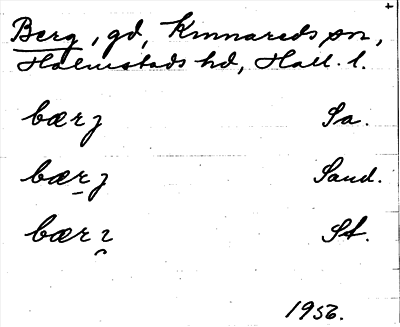 Berg, gd, Kinnareds sn,
Halmstads hd, Hall. l.
bærȝ Sa.
bær̠ȝ Sand.
bærɿ̯ St.
1956.